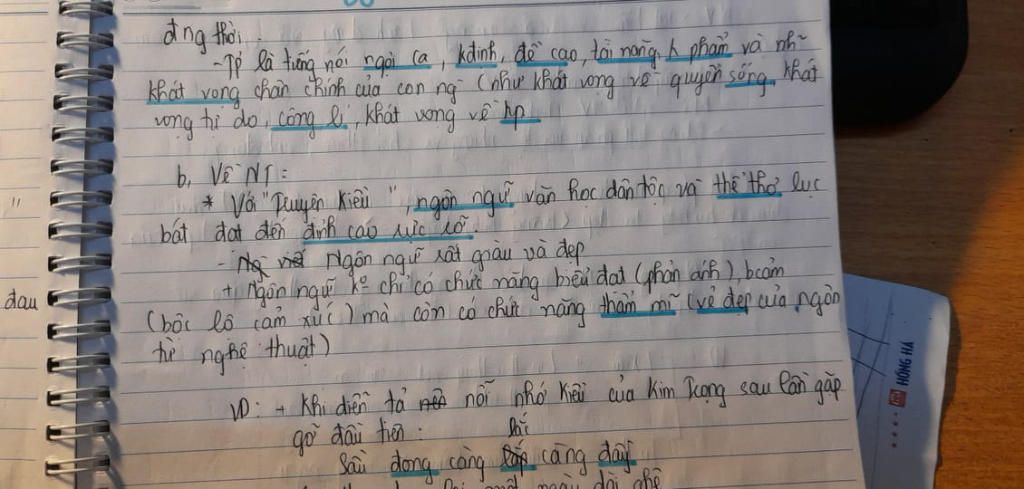 đng thời.
- TP là tiếng nói ngợi ca, kđịnh, đề cao, tài năng, phẩm và nh~
khát vọng chân chính của con ng (như khát vọng về quyền sống, khát
vọng tự do, công lí, khát vọng về hp
b, Về NT:
* Với "Truyện Kiều", ngôn ngữ văn học dân tộc và thể thơ lục
bát đạt đến đỉnh cao rực rỡ.
- Ngôn ngữ rất giàu và đẹp
+ Ngôn ngữ k° chỉ có chức năng biểu đạt (phản ánh) bcảm
(bộc lộ cảm xúc) mà còn có chức năng thẩm mĩ (vẻ đẹp của ngôn
từ nghệ thuật)
VD: + Khi diễn tả nỗi nhớ Kiều của Kim Trọng sau lần gặp
gỡ đầu tiên:
lắc
Sầu đong càng càng đầy
ngày dài ghê
"
đau
HỒNG HÀ